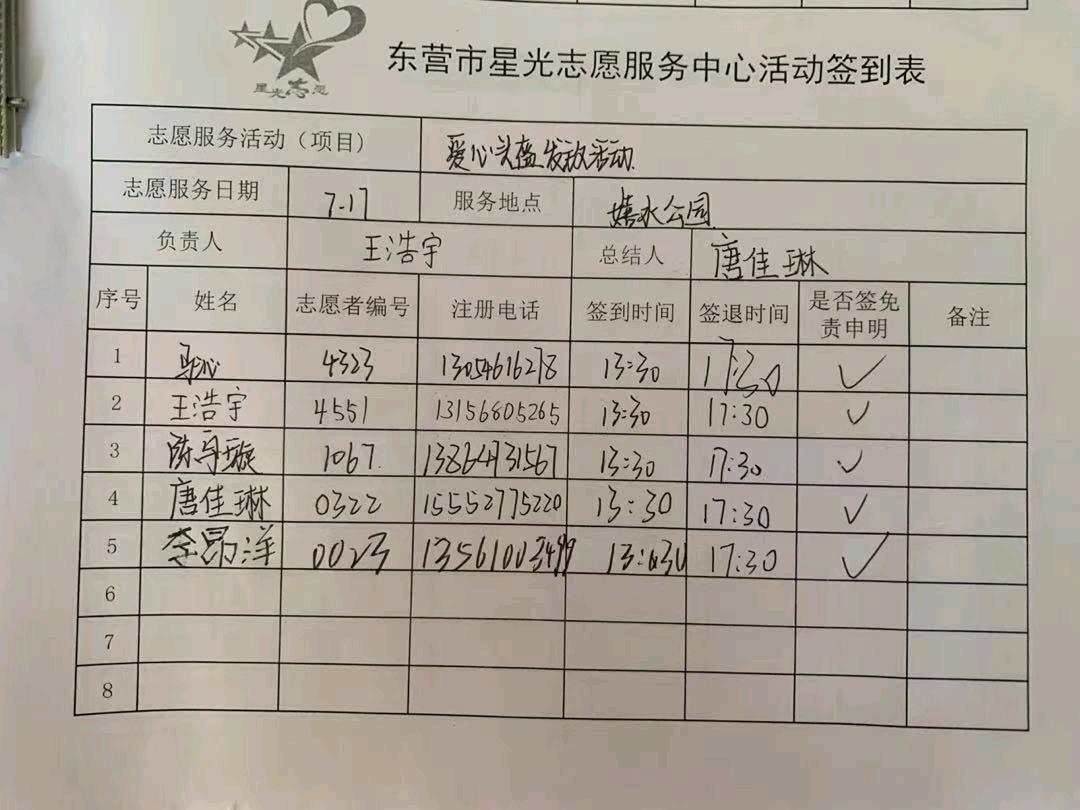 星光志愿
东营市星光志愿服务中心活动签到表
志愿服务活动（项目） 爱心头盔发放活动
志愿服务日期 7.17 服务地点 嬉水公园
负责人 王浩宇 总结人 唐佳琳
序号 姓名 志愿者编号 注册电话 签到时间 签退时间 是否签免责申明 备注
1 4323 13054616278 13:30 17:30 ✓
2 王浩宇 4551 13156805265 13:30 17:30 ✓
3 1067 13864731567 13:30 17:30 ✓
4 唐佳琳 0322 15552775220 13:30 17:30 ✓
5 李昂洋 0023 13561003499 13:30 17:30 ✓
6
7
8